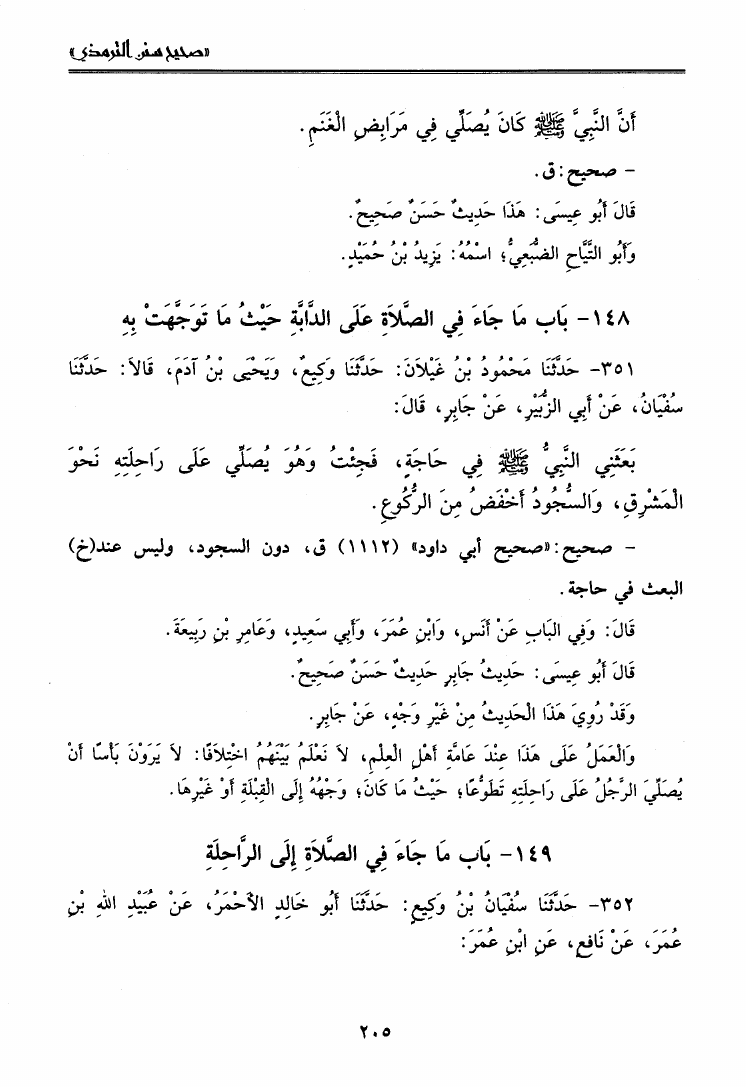 «صحيح سنن الترمذي»
أَنَّ النَّبِيَّ ﷺ كَانَ يُصَلِّي فِي مَرَابِضِ الْغَنَمِ.
- صحيح: ق.
قَالَ أَبُو عِيسَى: هَذَا حَدِيثٌ حَسَنٌ صَحِيحٌ.
وَأَبُو التَّيَّاحِ الضُّبَعِيُّ؛ اسْمُهُ: يَزِيدُ بْنُ حُمَيْدٍ.
١٤٨- بَاب مَا جَاءَ فِي الصَّلَاةِ عَلَى الدَّابَّةِ حَيْثُ مَا تَوَجَّهَتْ بِهِ
٣٥١- حَدَّثَنَا مَحْمُودُ بْنُ غَيْلَانَ: حَدَّثَنَا وَكِيعٌ، وَيَحْيَى بْنُ آدَمَ، قَالاَ: حَدَّثَنَا
سُفْيَانُ، عَنْ أَبِي الزُّبَيْرِ، عَنْ جَابِرٍ، قَالَ:
بَعَثَنِي النَّبِيُّ ﷺ فِي حَاجَةٍ، فَجِئْتُ وَهُوَ يُصَلِّي عَلَى رَاحِلَتِهِ نَحْوَ
الْمَشْرِقِ، وَالسُّجُودُ أَخْفَضُ مِنَ الرُّكُوعِ.
- صحيح: «صحيح أبي داود» (١١١٢) ق، دون السجود، وليس عند(خ)
البعث في حاجة.
قَالَ: وَفِي الْبَابِ عَنْ أَنَسٍ، وَابْنِ عُمَرَ، وَأَبِي سَعِيدٍ، وَعَامِرِ بْنِ رَبِيعَةَ.
قَالَ أَبُو عِيسَى: حَدِيثُ جَابِرٍ حَدِيثٌ حَسَنٌ صَحِيحٌ.
وَقَدْ رُوِيَ هَذَا الْحَدِيثُ مِنْ غَيْرِ وَجْهٍ، عَنْ جَابِرٍ.
وَالْعَمَلُ عَلَى هَذَا عِنْدَ عَامَّةِ أَهْلِ الْعِلْمِ، لَا نَعْلَمُ بَيْنَهُمُ اخْتِلَافًا: لَا يَرَوْنَ بَأْسًا أَنْ
يُصَلِّيَ الرَّجُلُ عَلَى رَاحِلَتِهِ تَطَوُّعًا؛ حَيْثُ مَا كَانَ؛ وَجْهُهُ إِلَى الْقِبْلَةِ أَوْ غَيْرِهَا.
١٤٩- بَاب مَا جَاءَ فِي الصَّلَاةِ إِلَى الرَّاحِلَةِ
٣٥٢- حَدَّثَنَا سُفْيَانُ بْنُ وَكِيعٍ: حَدَّثَنَا أَبُو خَالِدٍ الأَحْمَرُ، عَنْ عُبَيْدِ اللهِ بْنِ
عُمَرَ، عَنْ نَافِعٍ، عَنِ ابْنِ عُمَرَ:
٢٠٥